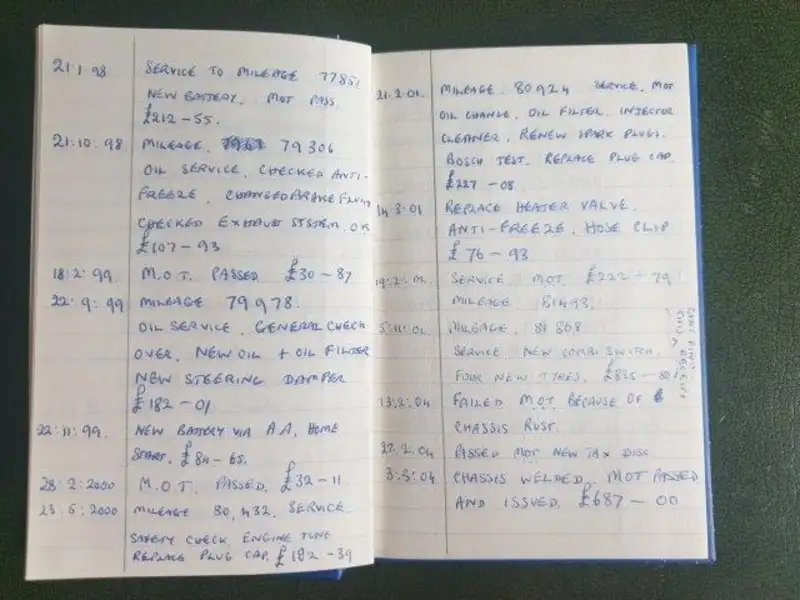 21:1:98 SERVICE TO MILEAGE 77851
NEW BATTERY. MOT PASS.
£212-55.
21:10:98 MILEAGE. 79306
OIL SERVICE, CHECKED ANTI-
FREEZE, CHANGED BRAKE FLUID
CHECKED EXHAUST SYSTEM, OK
£107-93
18:2:99 M.O.T. PASSED £30-87
22:9:99 MILEAGE 79978.
OIL SERVICE, GENERAL CHECK
OVER, NEW OIL + OIL FILTER
NEW STEERING DAMPER
£182-01
22:11:99. NEW BATTERY VIA A.A. HOME
START. £84-65.
28:2:2000 M.O.T. PASSED, £32-11
23:5:2000 MILEAGE 80,432. SERVICE.
SAFETY CHECK, ENGINE TUNE
REPLACE PLUG CAP. £182-39
21:2:01. MILEAGE. 80924 SERVICE, MOT
OIL CHANGE, OIL FILTER. INJECTOR
CLEANER, RENEW SPARK PLUGS.
BOSCH TEST, REPLACE PLUG CAP.
£227-08
14:3:01 REPLACE HEATER VALVE.
ANTI-FREEZE, HOSE CLIP
£76-93
SERVICE MOT £222-79
MILEAGE 81493.
5:11:02. MILEAGE, 81868
SERVICE NEW COMBI SWITCH.
FOUR NEW TYRES, £835-80
CANT FIND
A RECEIPT
13:2:04 FAILED MOT BECAUSE OF
CHASSIS RUST.
27:2:04 PASSED MOT NEW TAX DISC
3:3:04 CHASSIS WELDED, MOT PASSED
AND ISSUED, £687-00